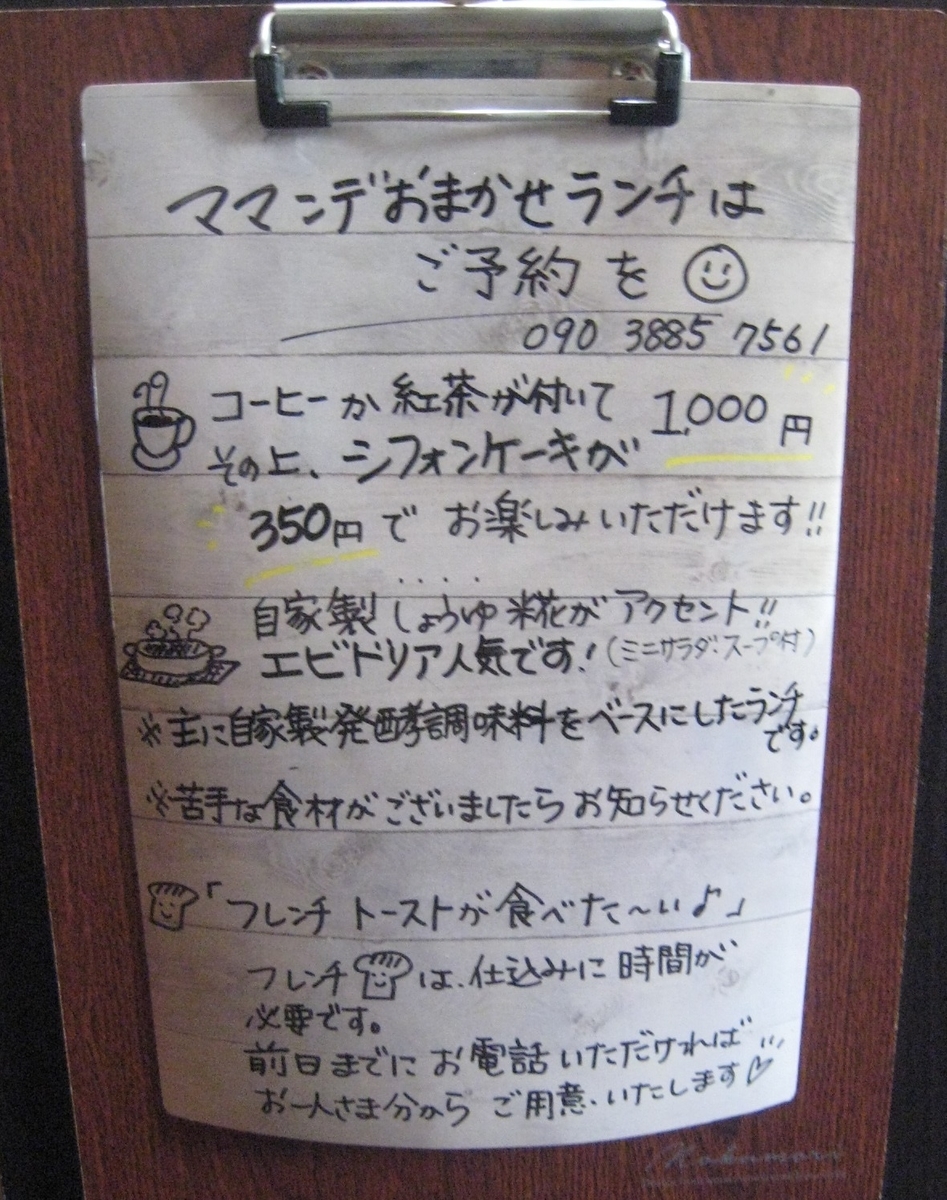 ママンデおまかせランチは
ご予約を
090 3885 7561
コーヒーか紅茶が付いて 1,000円
その上、シフォンケーキが
350円で お楽しみいただけます!!
自家製しょうゆ糀がアクセント!!
エビドリア人気です!(ミニサラダ・スープ付)
※主に自家製発酵調味料をベースにしたランチ
です。
※苦手な食材がございましたらお知らせください。
「フレンチトーストが食べた～い♪」
フレンチは、仕込みに時間が
必要です。
前日までにお電話いただければ
お一人さま分からご用意いたします♡